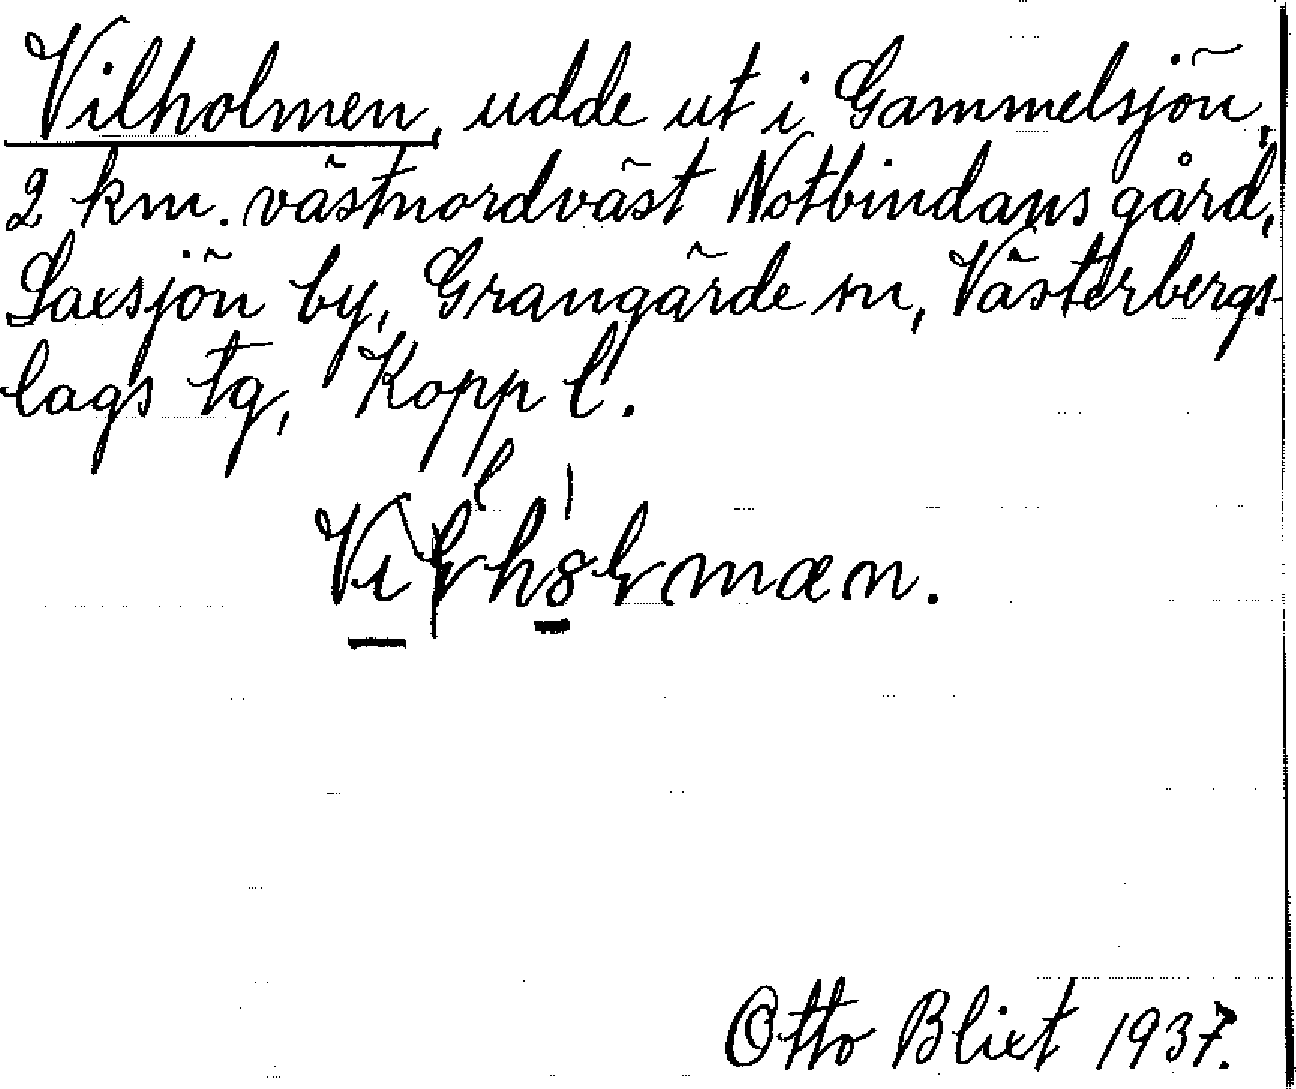 Vilholmen, udde ut i Gammelsjön,
2 km. västnordväst Notbindans gård,
Saxsjön by, Grangärde sn, Västerbergs-
lags tg, Kopp l.
Otto Blixt 1937.